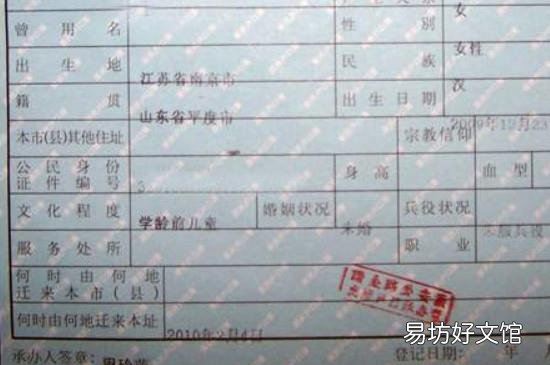 女
曾用名 性别 女性
出生地 江苏省南京市 民族 汉
籍贯 山东省平度市 出生日期 2009年12月23
本市(县)其他住址 宗教信仰
公民身份证件编号 3 身高 血型
文化程度 学龄前儿童 婚姻状况 未婚 兵役状况 未服兵役
服务处所 职业
何时由何地迁来本市(县)
何时由何地迁来本址 2010年2月4日
承办人签章: 登记日期: 年 月
易坊好文馆